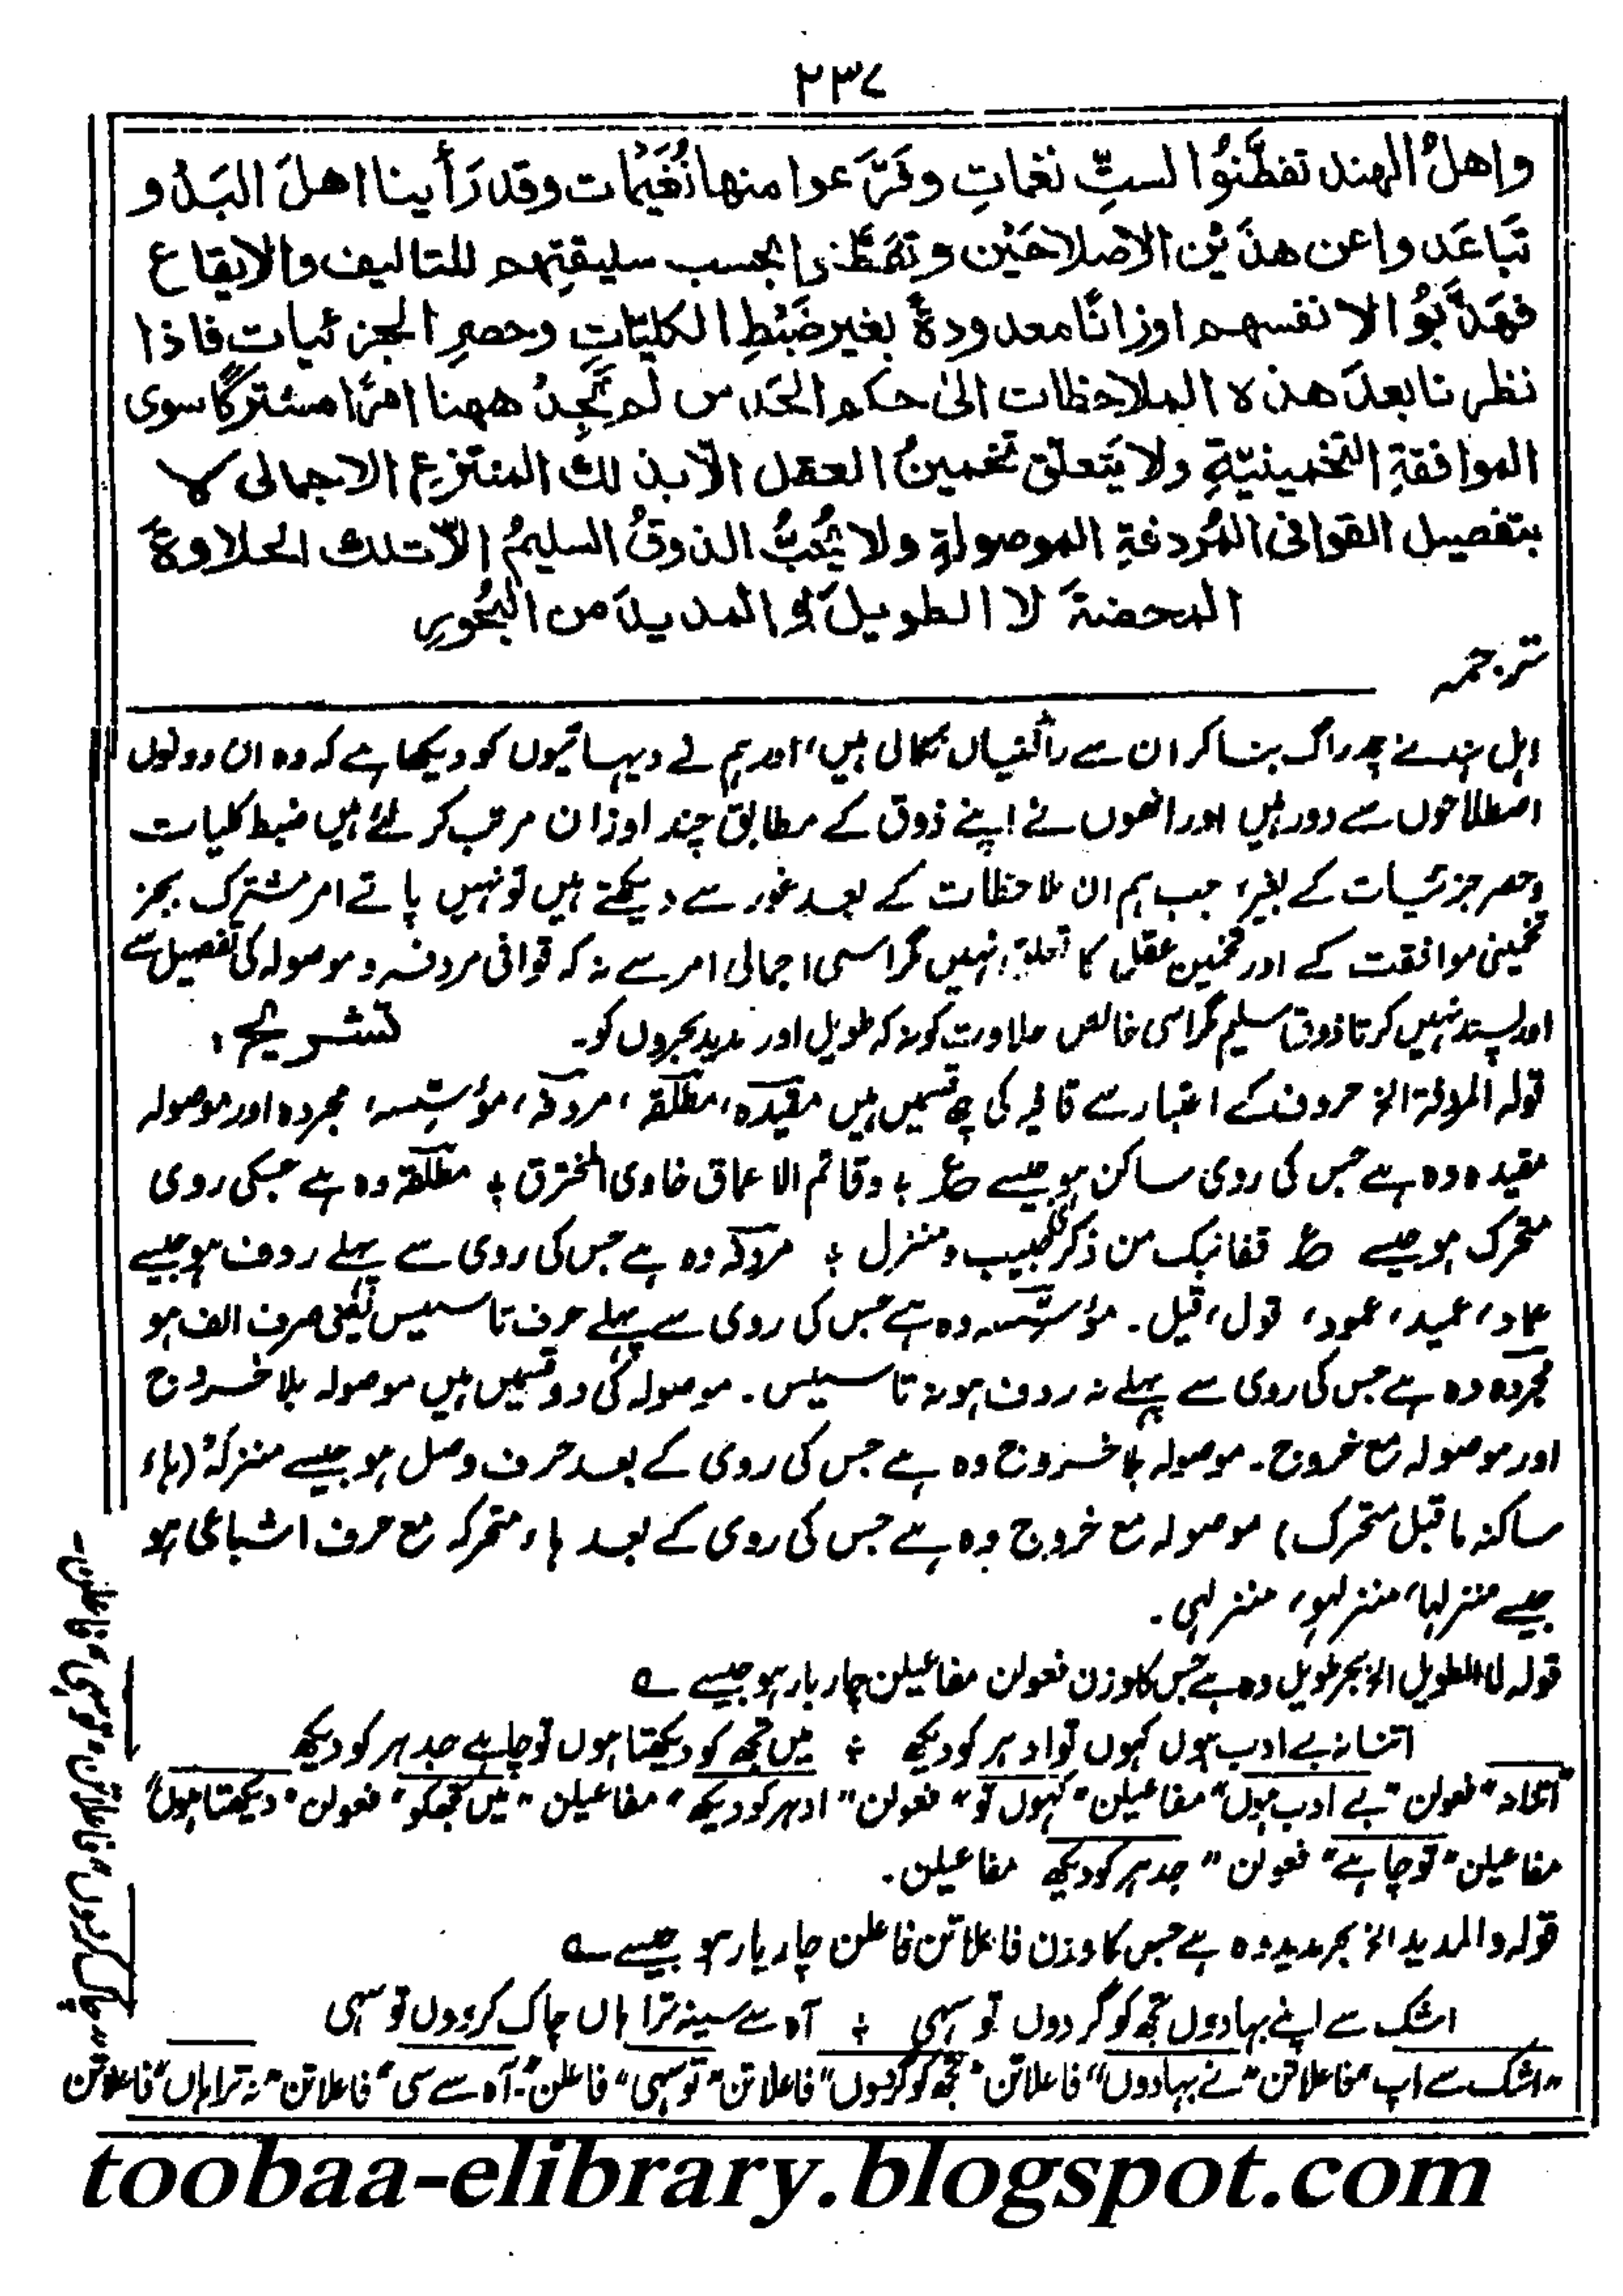 ۲۳۷
واهلُ الهند تفطَّنُوا لستِّ نغماتٍ وفَرَّعوا منها نُغَيْمات وقد رَأَينا اهلَ البَدْو
تَبَاعَدوا عن هذَيْنِ الاصلاحَيْن وتفطَّنوا بحسب سليقتِهم للتاليف والايقاع
فهَذَّبُوا لانفسهم اوزانًا معدودةً بغير ضَبْطِ الكليّاتِ وحصرِ الجزئيات فاذا
نظرنا بعدَ هذه الملاحظات الىٰ حكم الحَدس لم نَجِدْ ههنا امرًا مشتركًا سوى
الموافقةِ التخمينيّةِ ولا يَتعلق تخمينُ العقل الّا بذلك المنتزعِ الاجمالى لا
بتفصيل القوافى المُردفةِ الموصولةِ ولا يُحِبُّ الذوقُ السليمُ الّا تلك الحلاوةَ
المحضةَ لا الطويلَ والمديدَ من البُحُورِ
ترجمہ
اہل ہند نے چھ راگ بنا کر ان سے راگنیاں نکالی ہیں، اور ہم نے دیہاتیوں کو دیکھا ہے کہ وہ ان دونوں
اصطلاحوں سے دور ہیں اور انھوں نے اپنے ذوق کے مطابق چند اوزان مرتب کر لئے ہیں ضبط کلیات
وحصر جزئیات کے بغیر، جب ہم ان ملاحظات کے بعد غور سے دیکھتے ہیں تو نہیں پاتے امر مشترک بجز
تخمینی موافقت کے اور تخمین عقل کا تعلق نہیں مگر اسی اجمالی امر سے نہ کہ قوافی مردفہ و موصولہ کی تفصیل سے
اور پسند نہیں کرتا ذوق سلیم مگر اسی خالص حلاوت کو نہ کہ طویل اور مدید بحروں کو۔ تشریح:
قولہ المردفۃ الخ حروف کے اعتبار سے قافیہ کی چھ قسمیں ہیں مقیدہ، مطلقہ، مردفہ، مؤسسہ، مجردہ اور موصولہ
مقیدہ وہ ہے جس کی روی ساکن ہو جیسے ع ؛ وقاتم الاعماق خاوی المخترق ؛ مطلقہ وہ ہے جسکی روی
متحرک ہو جیسے ع قفا نبک من ذکریٰ حبیب ومنزل ؛ مردفہ وہ ہے جس کی روی سے پہلے ردف ہو جیسے
عماد، عمید، عمود، قول، قیل۔ مؤسسہ وہ ہے جس کی روی سے پہلے حرف تاسیس یعنی صرف الف ہو
مجردہ وہ ہے جس کی روی سے پہلے نہ ردف ہو نہ تاسیس۔ موصولہ کی دو قسمیں ہیں موصولہ بلا خروج
اور موصولہ مع خروج۔ موصولہ بلا خروج وہ ہے جس کی روی کے بعد حرف وصل ہو جیسے منزلہْ (ہاء
ساکنہ ماقبل متحرک) موصولہ مع خروج وہ ہے جس کی روی کے بعد ہاء متحرکہ مع حرف اشباعی ہو
جیسے منزلہا، منزلہو، منزلہی۔
قولہ لا الطویل الخ بحر طویل وہ ہے جس کا وزن فعولن مفاعیلن چار بار ہو جیسے ؎
اتنا نہ بے ادب ہوں کہوں تو ادہر کو دیکھ ؛ میں تجھ کو دیکھتا ہوں تو چاہے جدہر کو دیکھ
"اتنانہ" فعولن "بے ادب ہوں" مفاعیلن "کہوں تو" فعولن "ادہر کو دیکھ" مفاعیلن "میں تجھکو" فعولن "دیکھتا ہوں"
مفاعیلن "تو چاہے" فعولن "جدہر کو دیکھ" مفاعیلن۔
قولہ والمدید الخ بحر مدید وہ ہے جس کا وزن فاعلاتن فاعلن چار بار ہو جیسے ؎
اشک سے اپنے بہا دوں تجھ کو گردوں تو سہی ؛ آہ سے سینہ ترا ہاں چاک کر دوں تو سہی
"اشک سے اپ" فاعلاتن "نے بہادوں" فاعلاتن "تجھ کو گردوں" فاعلاتن "تو سہی" فاعلن "آہ سے سی" فاعلاتن "نہ ترا ہاں" فاعلاتن
"چاک کردوں" فاعلاتن "تو سہی" فاعلن۔
toobaa-elibrary.blogspot.com